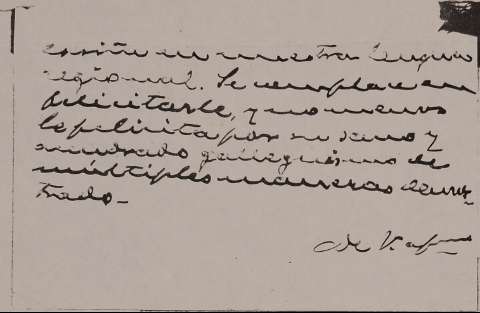 escribe en nuestra lengua
regional. Se complace en
felicitarle, y no menos
le felicita por su sano y
acendrado galleguismo de
múltiples maneras demos-
trado.-
de V. afmo